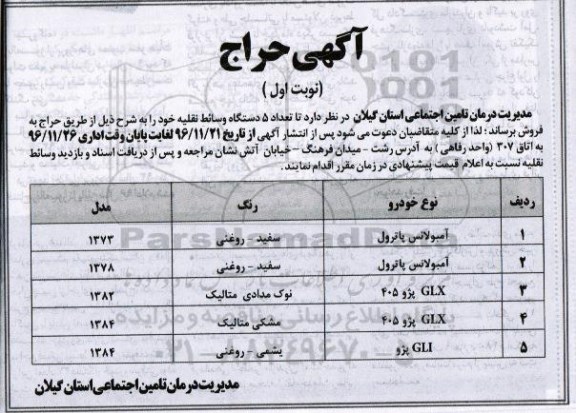 آگهی حراج
(نوبت اول)
مدیریت درمان تامین اجتماعی استان گیلان در نظر دارد تا تعداد ۵ دستگاه وسائط نقلیه خود را به شرح ذیل از طریق حراج به
فروش برساند؛ لذا از کلیه متقاضیان دعوت می شود پس از انتشار آگهی از تاریخ ۹۶/۱۱/۲۱ لغایت پایان وقت اداری ۹۶/۱۱/۲۶
به اتاق ۳۰۷ (واحد رفاهی) به آدرس رشت - میدان فرهنگ - خیابان آتش نشان مراجعه و پس از دریافت اسناد و بازدید وسائط
نقلیه نسبت به اعلام قیمت پیشنهادی در زمان مقرر اقدام نمایند.
ردیف نوع خودرو رنگ مدل
۱ آمبولانس پاترول سفید - روغنی ۱۳۷۳
۲ آمبولانس پاترول سفید - روغنی ۱۳۷۸
۳ GLX پژو ۴۰۵ نوک مدادی متالیک ۱۳۸۲
۴ GLX پژو ۴۰۵ مشکی متالیک ۱۳۸۴
۵ GLI پژو یشمی - روغنی ۱۳۸۴
مدیریت درمان تامین اجتماعی استان گیلان
ParsNamadData
پایگاه اطلاع رسانی مناقصه و مزایده
۰۲۱-۸۸۳۴۹۶۷۰-۵